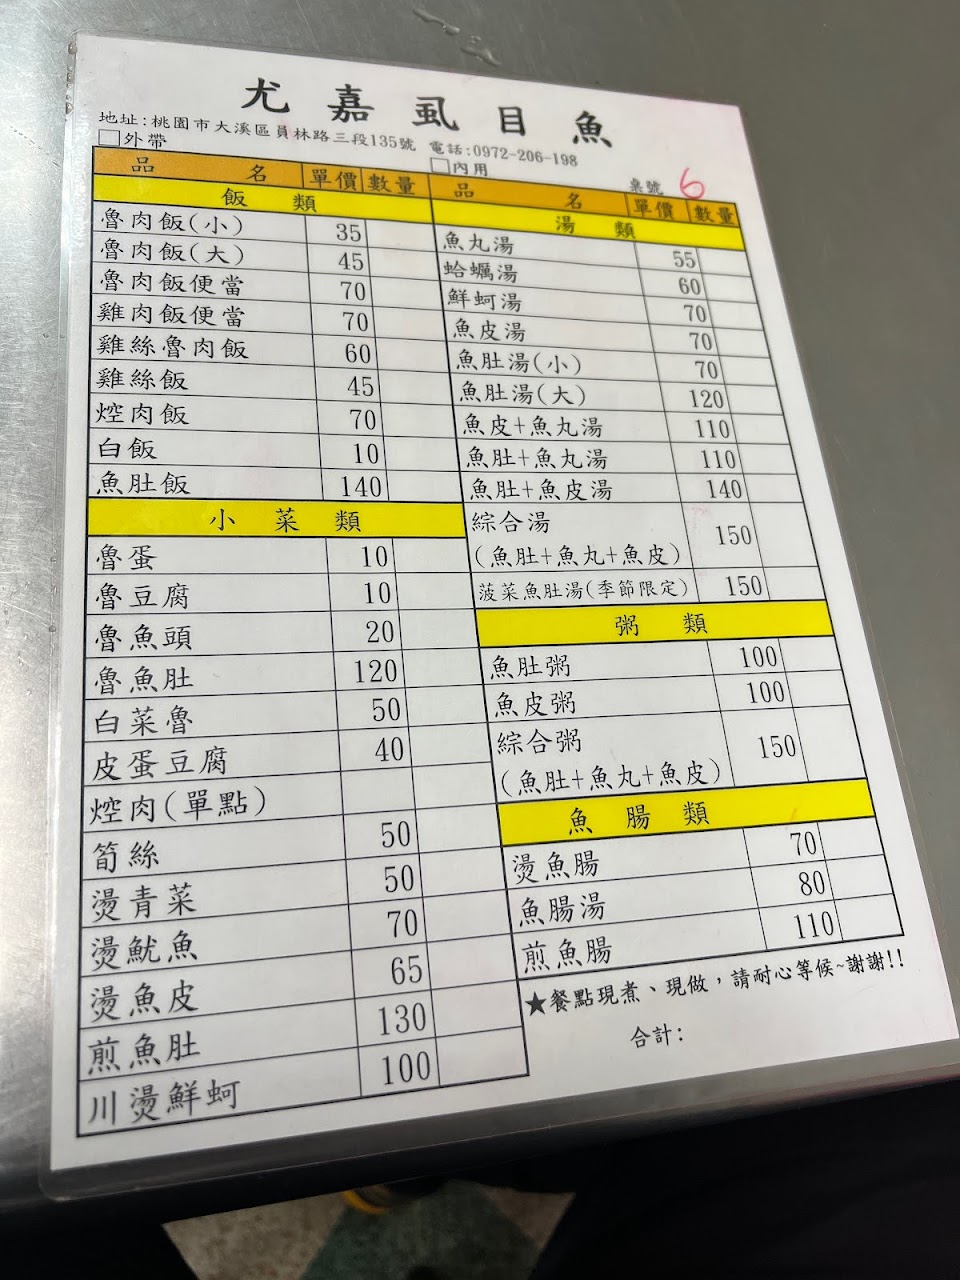 尤嘉虱目魚
地址:桃園市大溪區員林路三段135號 電話:0972-206-198
□外帶 □內用 桌號 6
品名 單價 數量
飯類
魯肉飯(小) 35
魯肉飯(大) 45
魯肉飯便當 70
雞肉飯便當 70
雞絲魯肉飯 60
雞絲飯 45
焢肉飯 70
白飯 10
魚肚飯 140
小菜類
魯蛋 10
魯豆腐 10
魯魚頭 20
魯魚肚 120
白菜魯 50
皮蛋豆腐 40
焢肉(單點)
筍絲 50
燙青菜 50
燙魷魚 70
燙魚皮 65
煎魚肚 130
川燙鮮蚵 100
品名 單價 數量
湯類
魚丸湯 55
蛤蠣湯 60
鮮蚵湯 70
魚皮湯 70
魚肚湯(小) 70
魚肚湯(大) 120
魚皮+魚丸湯 110
魚肚+魚丸湯 110
魚肚+魚皮湯 140
綜合湯 150
(魚肚+魚丸+魚皮)
菠菜魚肚湯(季節限定) 150
粥類
魚肚粥 100
魚皮粥 100
綜合粥 150
(魚肚+魚丸+魚皮)
魚腸類
燙魚腸 70
魚腸湯 80
煎魚腸 110
★餐點現煮、現做，請耐心等候~謝謝!!
合計: